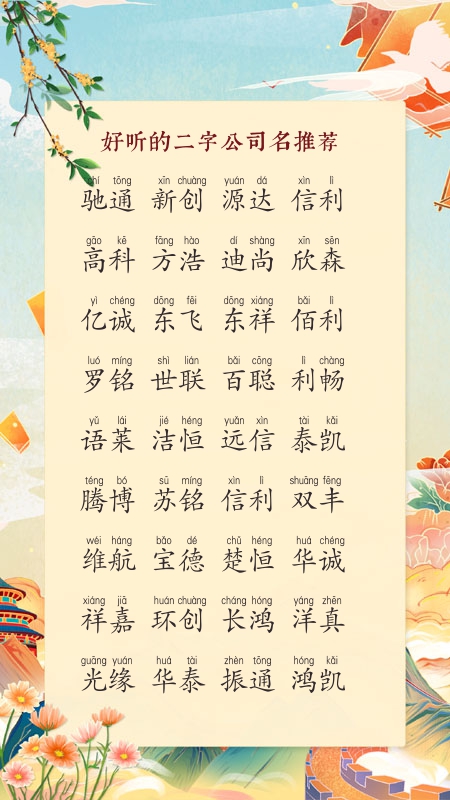 好听的二字公司名推荐
chí tōng xīn chuàng yuán dá xìn lì
驰通 新创 源达 信利
gāo kē fāng hào dí shàng xīn sēn
高科 方浩 迪尚 欣森
yì chéng dōng fēi dōng xiáng bǎi lì
亿诚 东飞 东祥 佰利
luó míng shì lián bǎi cōng lì chàng
罗铭 世联 百聪 利畅
yǔ lái jié héng yuǎn xìn tài kǎi
语莱 洁恒 远信 泰凯
téng bó sū míng xìn lì shuāng fēng
腾博 苏铭 信利 双丰
wéi háng bǎo dé chǔ héng huá chéng
维航 宝德 楚恒 华诚
xiáng jiā huán chuàng cháng hóng yáng zhēn
祥嘉 环创 长鸿 洋真
guāng yuán huá tài zhèn tōng hóng kǎi
光缘 华泰 振通 鸿凯